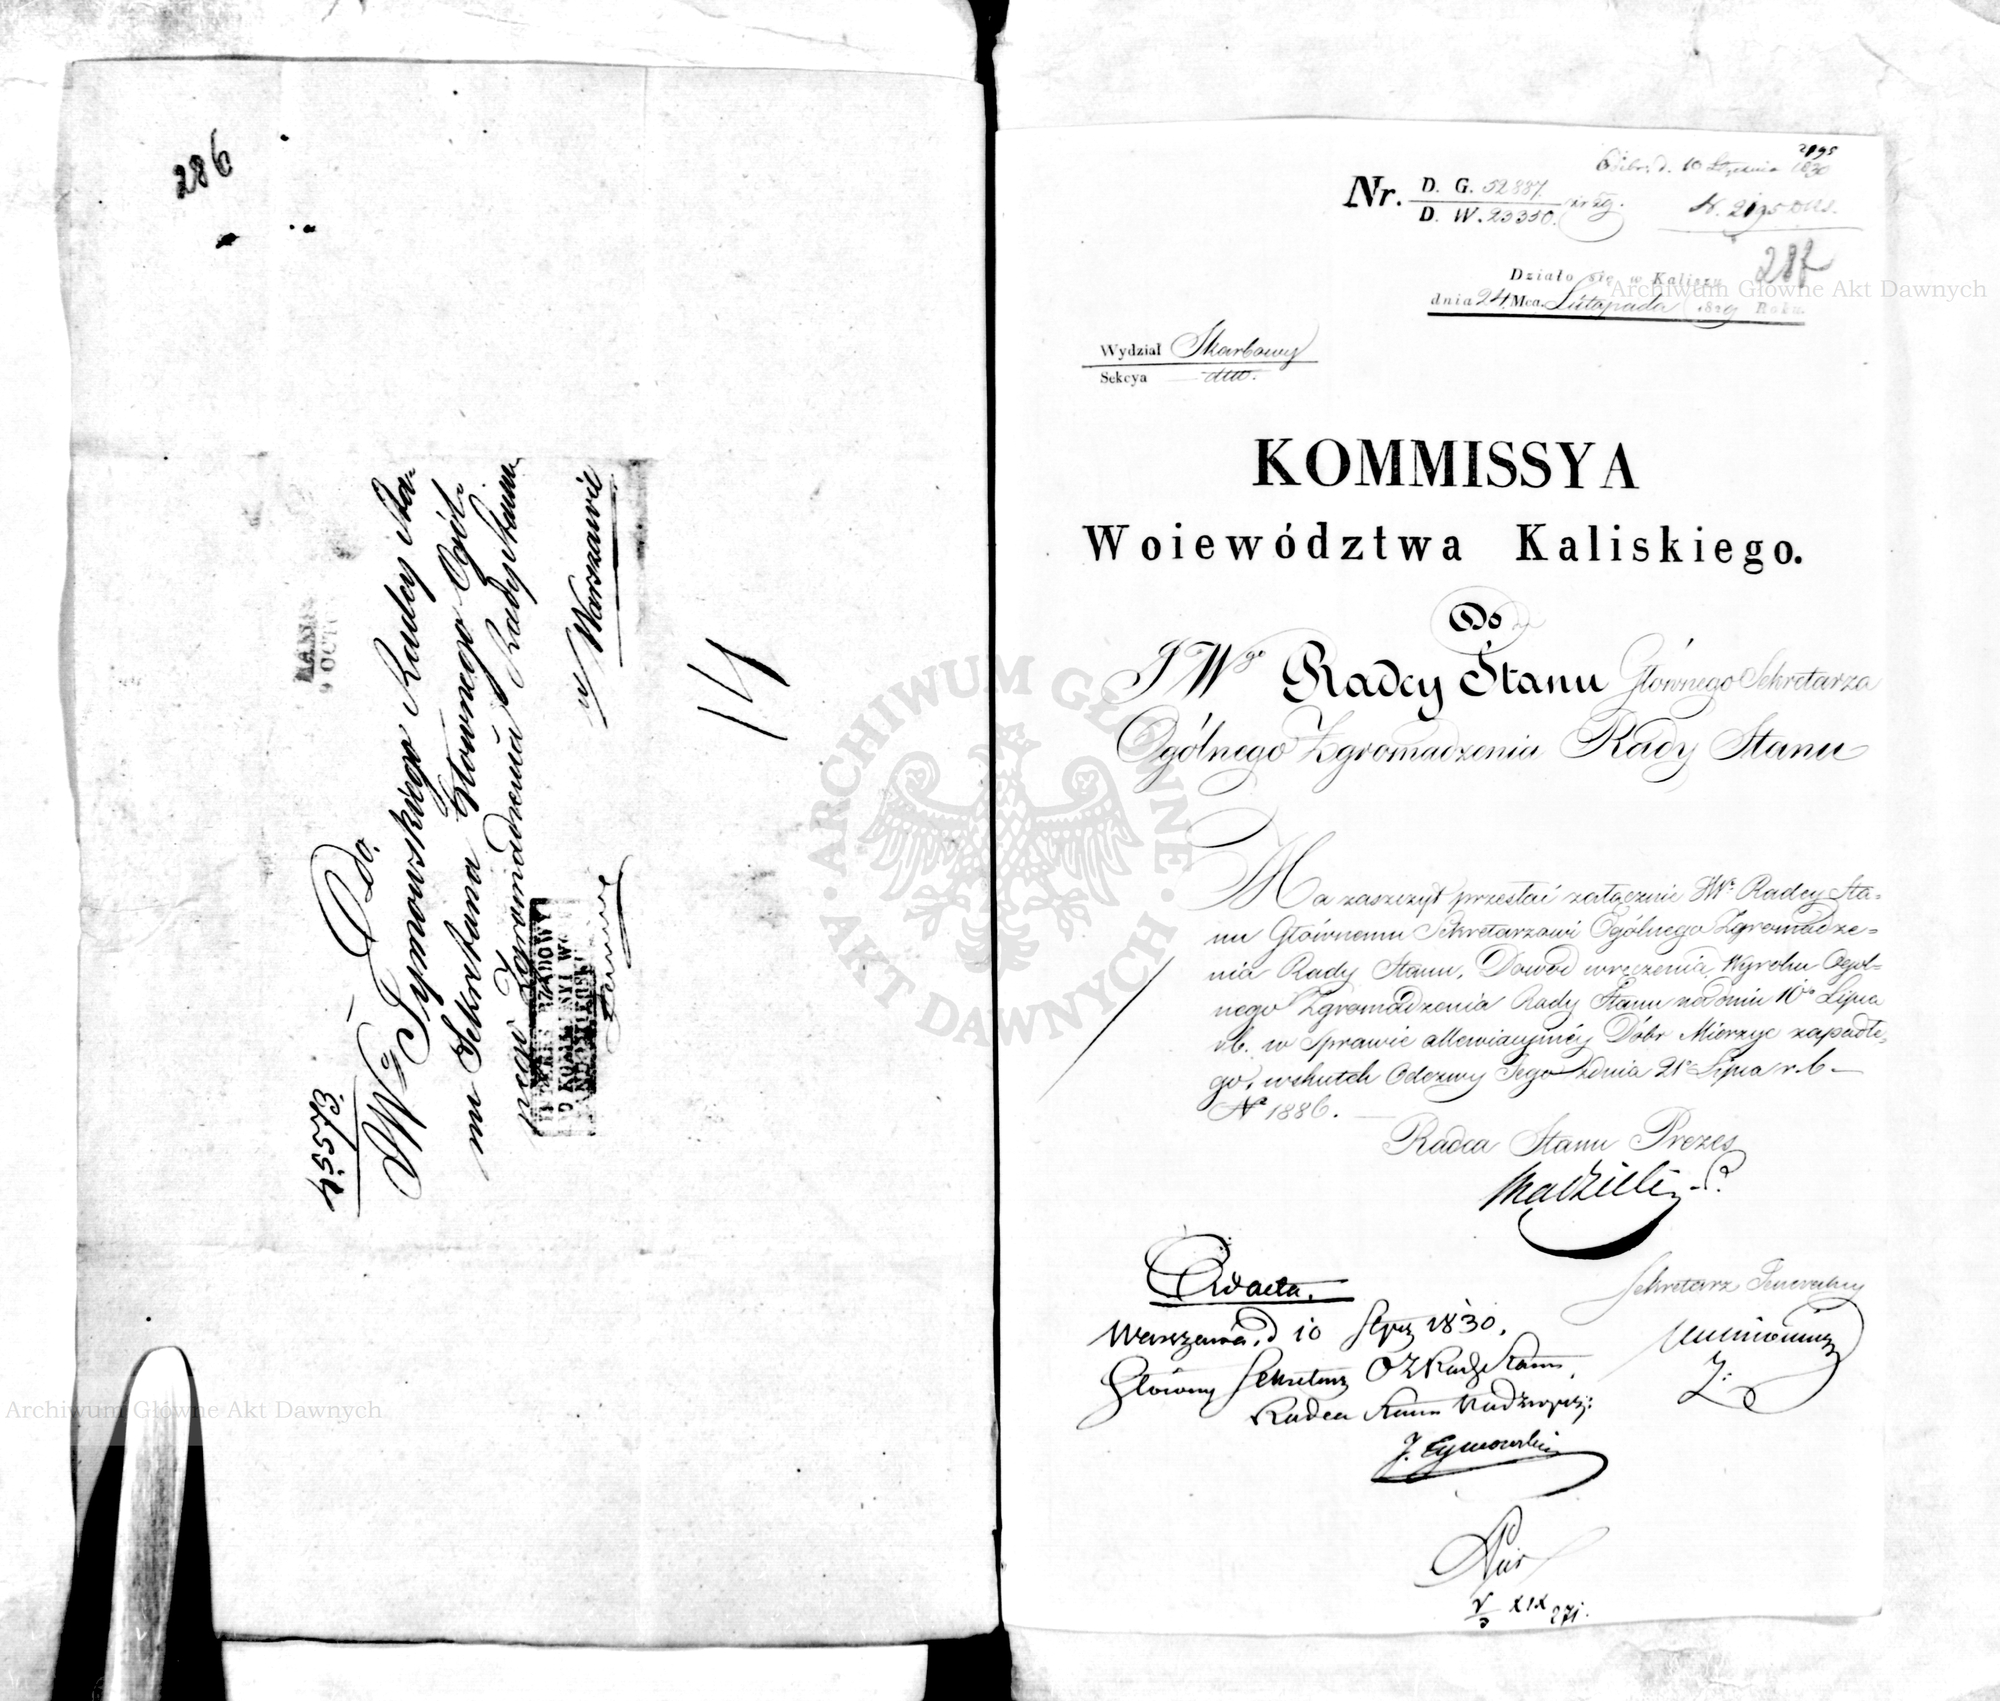 286
14
4554
Do.
JWgo Tymowskiego Radcy Sta-
nu Sekretarza Głównego Ogól-
nego Zgromadzenia Rady Stanu
w Warszawie
INTERES RZĄDOWY
Odebr. d. 10 Stycznia 1830
2195
Nr. D. G. 52887
D. W. 23350.
N. 2195
287
Działo się w Kaliszu
dnia 24 Mca Listopada 1829 Roku.
Wydział Skarbowy
Sekcya
KOMMISSYA
Woiewództwa Kaliskiego.
Do
JWgo Radcy Stanu Głównego Sekretarza
Ogólnego Zgromadzenia Rady Stanu
Ma zaszczyt przesłać załącznie JWu Radcy Sta-
nu Głównemu Sekretarzowi Ogólnego Zgromadze-
nia Rady Stanu, Dowód wręczenia Wyroku Ogól-
nego Zgromadzenia Rady Stanu na dniu 10go Lipca
r. b. w Sprawie Dóbr Mierzyc zapadłe-
go, wskutek Odezwy Jego z dnia 21o Lipca r. b.
No 1886.
Radca Stanu Prezes
Sekretarz Jeneralny
Ad acta.
Warszawa, d 10 Stycz 1830.
Główny Sekretarz O Z Rady Stanu,
Radca Stanu Nadzwycz:
J. Tymowski
XIX 271.
ARCHIWUM GŁÓWNE AKT DAWNYCH
Archiwum Główne Akt Dawnych
Archiwum Główne Akt Dawnych